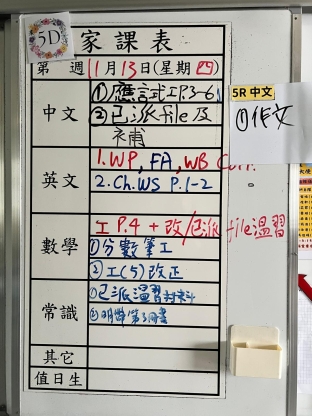 5D
家課表
第 週 11月13日(星期四)
中文
①應試工P.3-6
②已派file及
補
5R 中文
①作文
英文
1.WP, FA, WB Corr.
2.Ch.WS P.1-2
數學
工P.4 + 改/已派file溫習
①分數筆工
②工(5)改正
常識
①已派溫習封料
②明帶第3冊書
其它
值日生